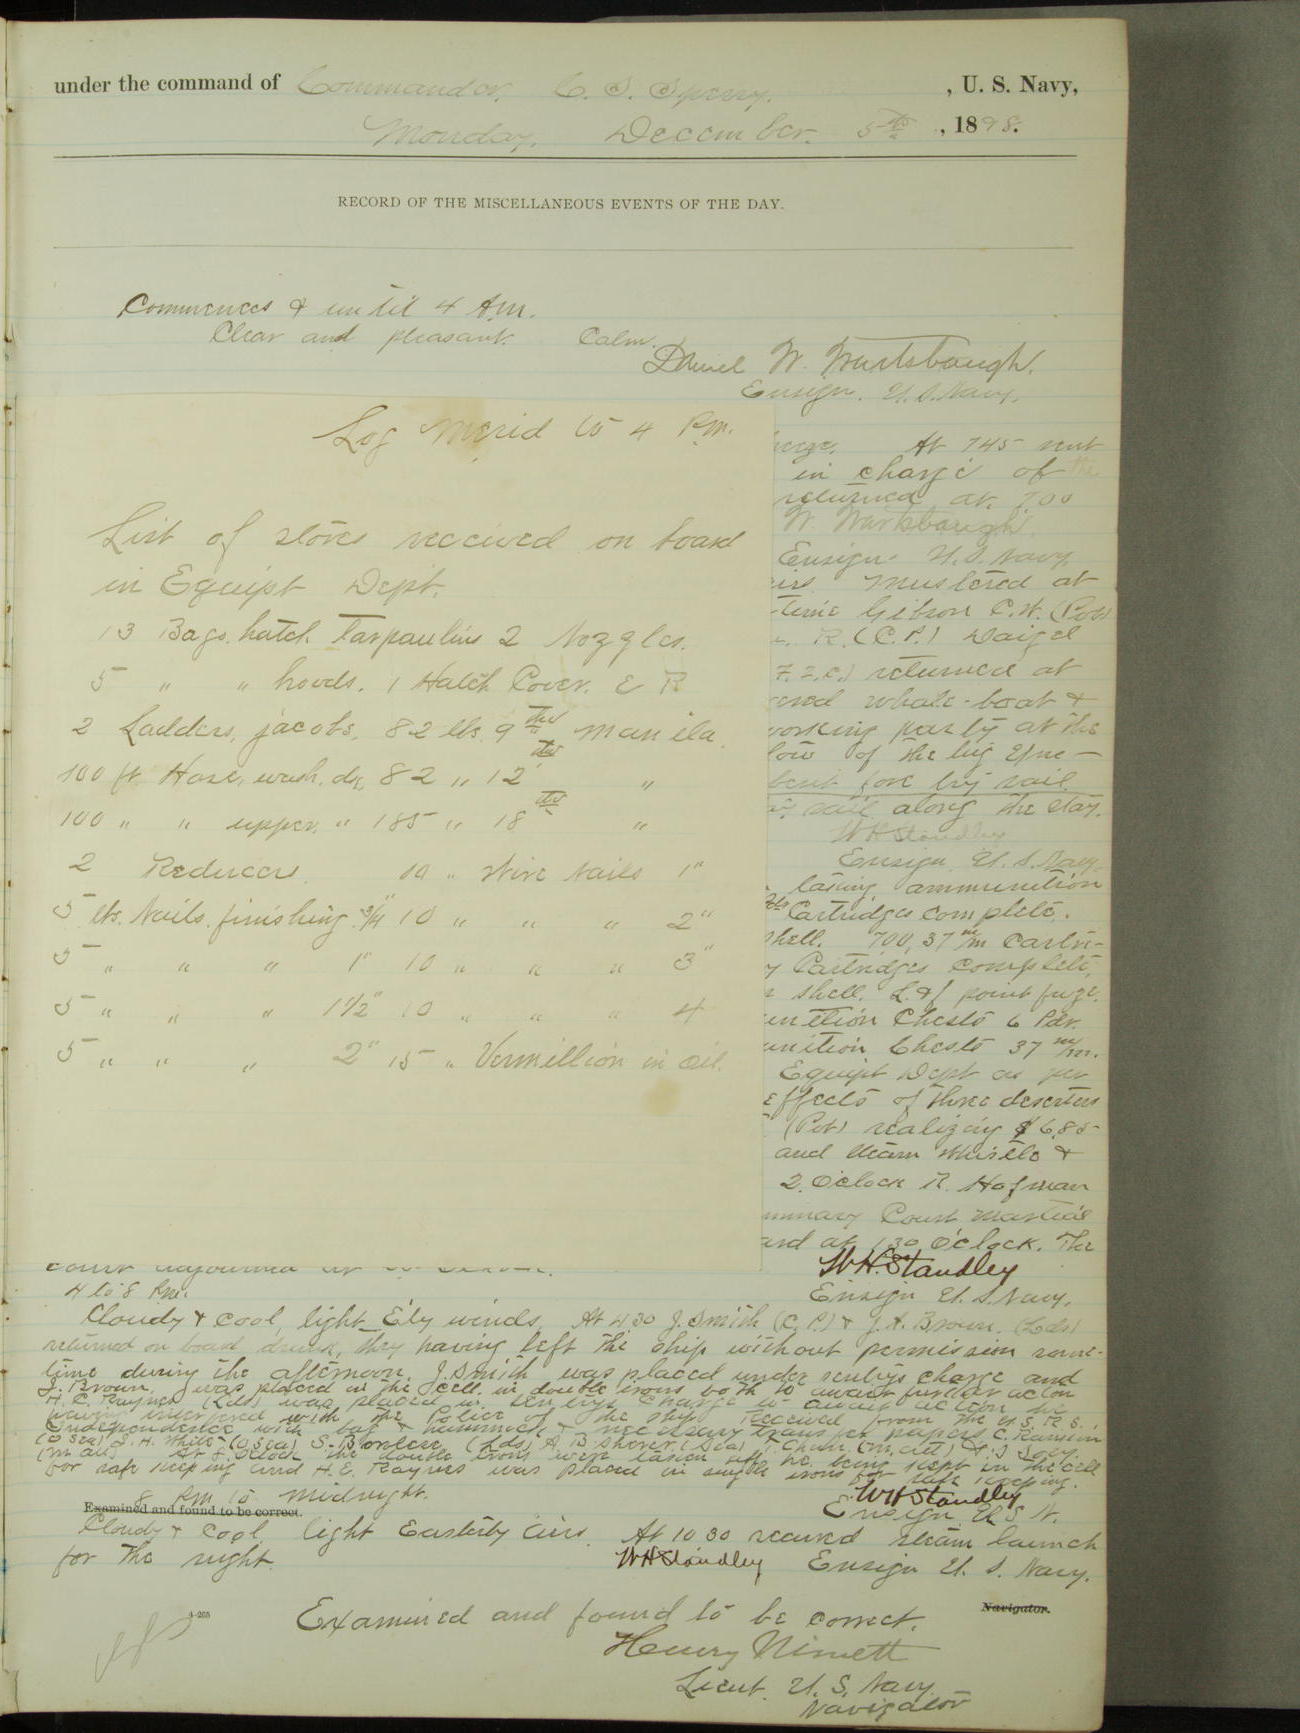 under the command of Commander, C. S. Sperry. , U. S. Navy,
Monday, December 5th, 1898.
RECORD OF THE MISCELLANEOUS EVENTS OF THE DAY.
Commences & until 4 A.m.
Clear and pleasant. Calm.
Daniel W. Wurtsbaugh.
Ensign. U. S. Navy.
Log Merid to 4 P.m.
List of stores received on board
in Equipt Dept.
13 Bags. hatch Tarpaulins 2 Nozzles.
5 " " hoods. 1 Hatch Cover. E R
2 Ladders, jacobs. 82 lbs. 9 thd Manila.
100 ft. Hose, wash. dk, 82 " 12 thd "
100 " " upper. " 185 " 18 thd "
2 Reducers. 10 " Wire Nails 1"
5 lbs. Nails. finishing 3/4" 10 " " " 2"
5 " " " 1" 10 " " " 3"
5 " " " 1 1/2" 10 " " " 4
5 " " " 2" 15 " Vermillion in oil.
At 745 sent
in charge of the
returned at. 7.00
W. Wurtsbaugh.
Ensign. U. S. Navy.
Mustered at
Gibson C. W. (
R. (C. P.) Daigel
F. 2. c.) returned at
whale-boat &
working party at the
of the big
bent fore try sail.
sail along the stay.
WH Standley
Ensign. U. S. Navy.
ammunition
Cartridges complete.
shell. 700, 37 m/m Cartri-
Cartridges complete,
shell. L. & f point fuze.
Chests 6 Pdr.
Chests 37 m/m.
Equipt Dept as per
effects of three deserters
realizing $6.85
and steam whistle &
2. O'clock R. Hofman
Court Martial
at 1 30 O'clock. The
court adjourned at
W H. Standley
Ensign U. S. Navy.
4 to 8 P.m.
Cloudy & cool, light E'ly winds. At 4.30 J. Smith (C. P.) & J. A. Brown. (Lds)
returned on board drunk, they having left the ship without permission some-
time during the afternoon. J. Smith was placed under sentrys charge and
J. Brown. was placed in the cell. in double irons both to await further action
H. E. Raynes (Lds) was placed in sentrys charge to await action he
having interfered with the Police of the ship. Received from the U. S. R. S.
Independence with bag & hammock & necessary transfer papers C. Ramsom
(O Sea) J. H. White (O Sea) S. (Lds) A. B. (Sea)
O'clock the double irons were taken off he being kept in the cell
for safe keeping and H. E. Raynes was placed in single irons for safe keeping.
WH Standley
Ensign U. S. N.
8 P.m to Midnight.
Examined and found to be correct.
Cloudy & cool, light Easterly airs. At 10 30 secured steam launch
for the night.
WH Standley Ensign U. S. Navy.
Examined and found to be correct.
Navigator.
Henry Minett
Lieut. U. S. Navy.
Navigator